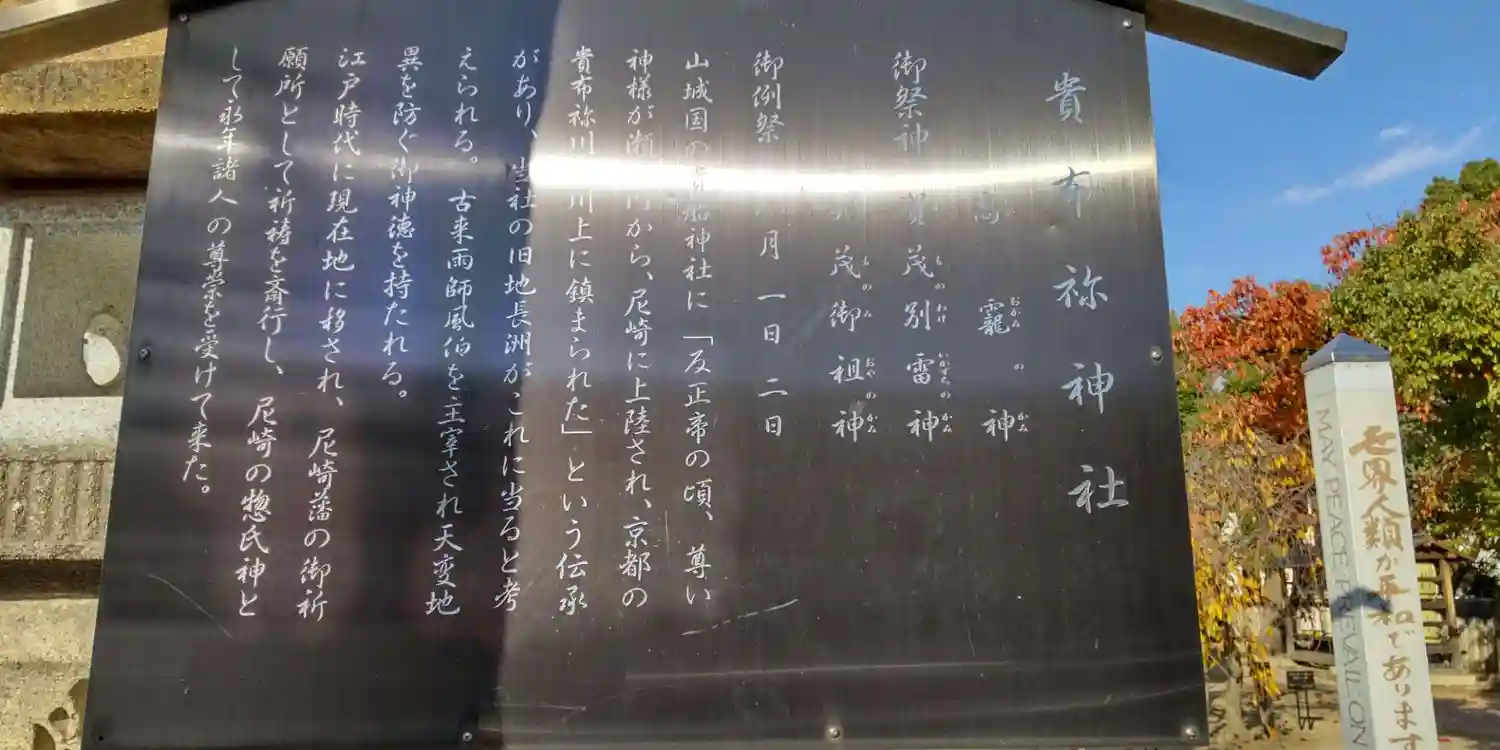 貴布祢神社
高靇神
おかみのかみ
御祭神 賀茂別雷神
ものわけいかずちのかみ
茂御祖神
ものみおやのかみ
御例祭 月一日二日
山城国の貴船神社に「反正帝の頃、尊い
神様が淀川から、尼崎に上陸され、京都の
貴布祢川の川上に鎮まられた」という伝承
があり、当社の旧地長洲がこれに当ると考
えられる。古来雨師風伯を主宰され天変地
異を防ぐ御神徳を持たれる。
江戸時代に現在地に移され、尼崎藩の御祈
願所として祈祷を斎行し、尼崎の惣氏神と
して永年諸人の尊崇を受けて来た。
世界人類が平和であります
MAY PEACE PREVAIL ON